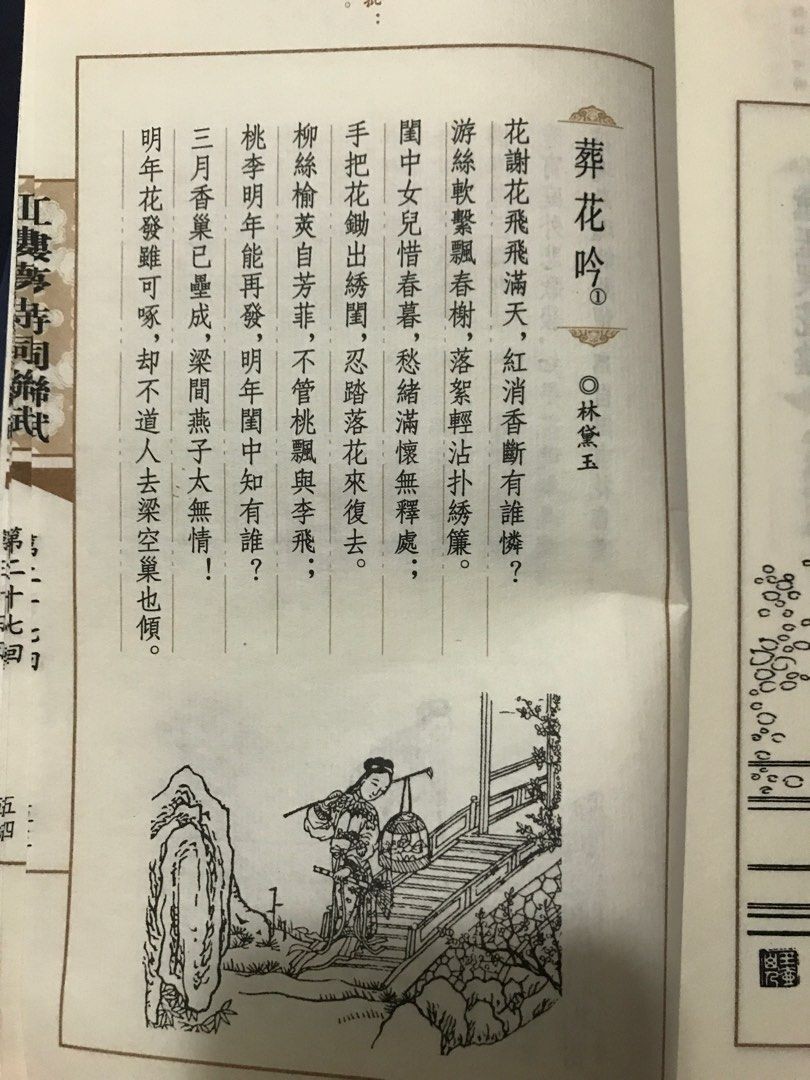 葬花吟①
◎林黛玉
花謝花飛飛滿天，紅消香斷有誰憐？
游絲軟繫飄春榭，落絮輕沾扑綉簾。
閨中女兒惜春暮，愁緒滿懷無釋處；
手把花鋤出綉閨，忍踏落花來復去。
柳絲榆莢自芳菲，不管桃飄與李飛；
桃李明年能再發，明年閨中知有誰？
三月香巢已壘成，梁間燕子太無情！
明年花發雖可啄，却不道人去梁空巢也傾。
第二十七回
五四